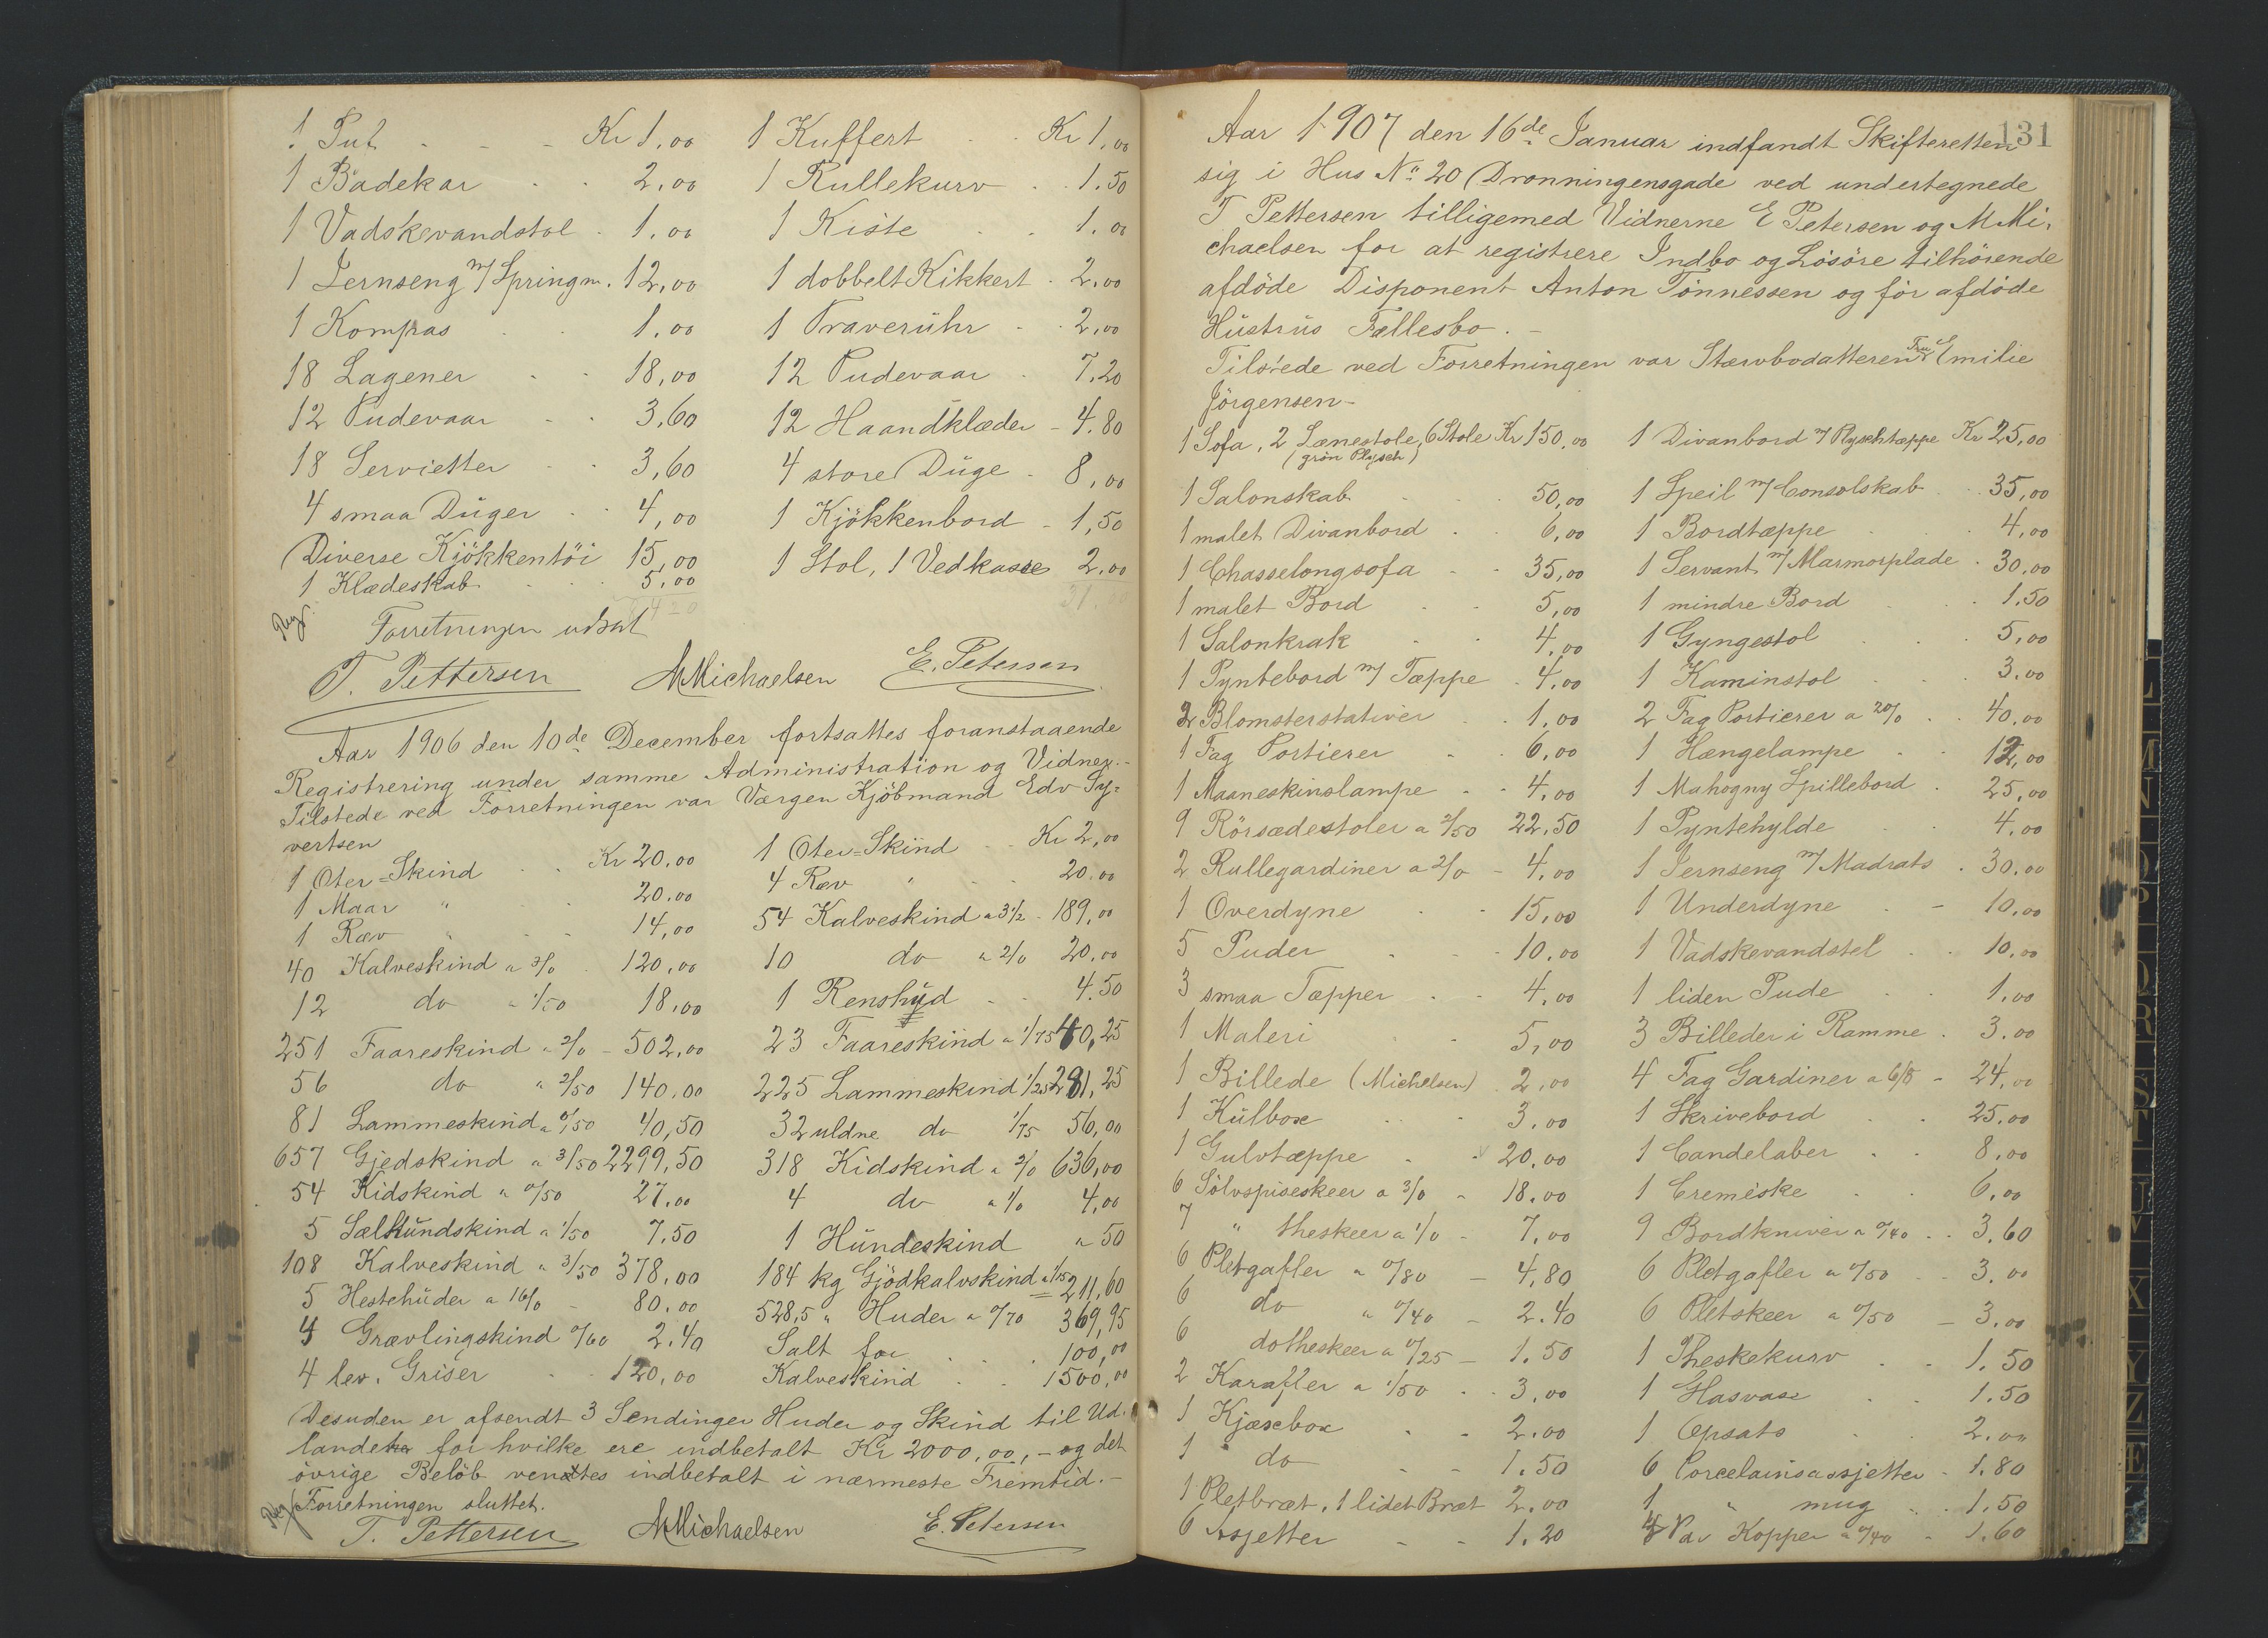 1 Put - - - Kr 1,00
1 Badekar - - 2,00
1 Vadskevandstol - 1,00
1 Jernseng m/Springm. 12,00
1 Kompas - - 1.00
18 Lagener - - 18,00
12 Pudevaar - - 3,60
18 Servietter - - 3,60
4 smaa Düger - - 4,00
Diverse Kjökkentöi 15,00
1 Klædeskab - - 5,00
1 Kuffert - - Kr 1,00
1 Rullekurv - - 1.50
1 Kiste - - 1.00
1 dobbelt Kikkert - 2,00
1 Traverühr - - 2,00
12 Pudevaar - 7.20
12 Haandklæder - 4.80
4 store Düge - 8,00
1 Kjökkenbord - 1,50
1 Stol, 1 Vedkasse 2,00
Forretningen udsat
T. Pettersen MMichaelsen E. Petersen
Aar 1906 den 10de December fortsattes foranstaaende
Registrering under samme Administration og Vidner.-
Tilstede ved Forretningen var Værgen Kjöbmand Edv Sy-
vertsen
1 Oter-Skind - - Kr 20,00
1 Maar " - 20.00
1 Ræv " - - 14,00
40 Kalveskind a 3/0 - 120,00
12 do a 1/50 18,00
251 Faareskind a 2/0 - 502,00
56 do a 2/50 140.00
81 Lammeskind a 0/50 40,50
657 Gjedskind a 3/50 2299,50
54 Kidskind a 0/50 27.00
5 Sælhündskind a 1/50 7.50
108 Kalveskind a 3/50 378,00
5 Hestehüder a 16/0 - 80.00
4 Grævlingskind 0/60 2.40
4 lev. Griser - - 120,00
1 Oter-Skind - - Kr 2,00
4 Ræv " - - 20.00
54 Kalveskind a 3 1/2 - 189,00
10 do a 2/0 20.00
1 Renshüd - - 4.50
23 Faareskind a 1/75 40,25
225 Lammeskind 1/25 281,25
32 uldne do 1/75 56,00
318 Kidskind a 2/0 636,00
4 do a 1/0 4,00
1 Hündeskind " 50
184 kg Gjödkalvskind a 1/15 211,60
528,5 " Huder a 0/70 369,95
Salt for - - - 100,00
Kalveskind - - 1500,00
Desuden er afsendt 3 Sendinger Huder og Skind til Ud-
landet for hvilke ere indbetalt Kr 2000,00,- og det
övrige Belöb ventes indbetalt i nærmeste Fremtid.-
Forretningen sluttet.
T. Pettersen MMichaelsen E. Petersen
131
Aar 1907 den 16de Januar indfandt Skifteretten
sig i Hus No 20 Dronningensgade ved undertegnede
T Pettersen tilligemed Vidnerne E Petersen og M Mi-
chaelsen for at registrere Indbo og Lösöre tilhörende
afdöde Disponent Anton Tönnessen og för afdöde
Hüstrüs Fællesbo.-
Tilstede ved Forretningen var Stervbodatteren Fru Emilie
Jörgensen-
1 Sofa, 2 Lænestole, 6 Stole Kr 150,00
(grön Plysch)
1 Salonskab - - - 50,00
1 malet Divanbord - - 6,00
1 Chasselongsofa - - 35,00
1 malet Bord - - 5,00
1 Salonkrak - - 4,00
1 Pyntebord m/ Tæppe - 4,00
2 Blomsterstativer - - 1,00
1 Fag Portierer - 6,00
1 Maaneskinslampe - - 4,00
9 Rörsædestoler a 2/50 22.50
2 Rullegardiner a 2/0 - 4,00
1 Overdyne - - 15,00
5 Puder - - - 10.00
3 smaa Tæpper - - 4,00
1 Maleri - 5,00
1 Billede (Michelsen) - 2,00
1 Külbox - - 3,00
1 Gulvtæppe - - 20.00
6 Sölvspiseskeer a 3/0 - 18.00
7 " theskeer a 1/0 - 7,00
6 Pletgafler a 0/80 - 4,80
6 do " 0/40 - 2.40
6 do theskeer a 0/25 - 1.50
2 Karafler a 1/50 - - 3,00
1 Kjæxbox - - 2.00
1 do - - 1.50
1 Pletbræt, 1 lidet Bræt 2.00
6 Asjetter - - 1.20
1 Divanbord m/ Plyschtæppe Kr 25,00
1 Speil m/ Consolskab - - 35,00
1 Bordtæppe - - 4,00
1 Servant m/ Marmorplade - 30.00
1 mindre Bord - - 1.50
1 Gyngestol - - - 5,00
1 Kaminstol - - - 3.00
2 Fag Portierer a 20/0 - - 40,00
1 Hængelampe - - 12,00
1 Mahogny Spillebord - 25,00
1 Pyntehylde - - 4,00
1 Jernseng m/ Madrats - 30.00
1 Underdyne - - 10,00
1 Vadskevandstel - - 10,00
1 liden Pude - - 1,00
3 Billeder i Ramme - 3.00
4 Fag Gardiner a 6/0 - 24,00
1 Skrivebord - - 25.00
1 Candelaber - - 8,00
1 Cremeske - - 6,00
9 Bordkniver a 0/40 - - 3.60
6 Pletgafler a 0/50 - - 3.00
6 Pletskeer a 0/50 - 3.00
1 Theskekurv - - 1.50
1 Glasvase - - 1.50
1 Opsats - - 2.00
6 Porcelainsassjetter - 1.80
1 " mug - - 1.50
4 Par Kopper a 0/40 - 1.60